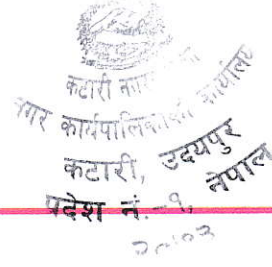 कटारी नगरपालिका
नगर कार्यपालिकाको कार्यालय
कटारी, उदयपुर
प्रदेश नं. -१, नेपाल
२०७३